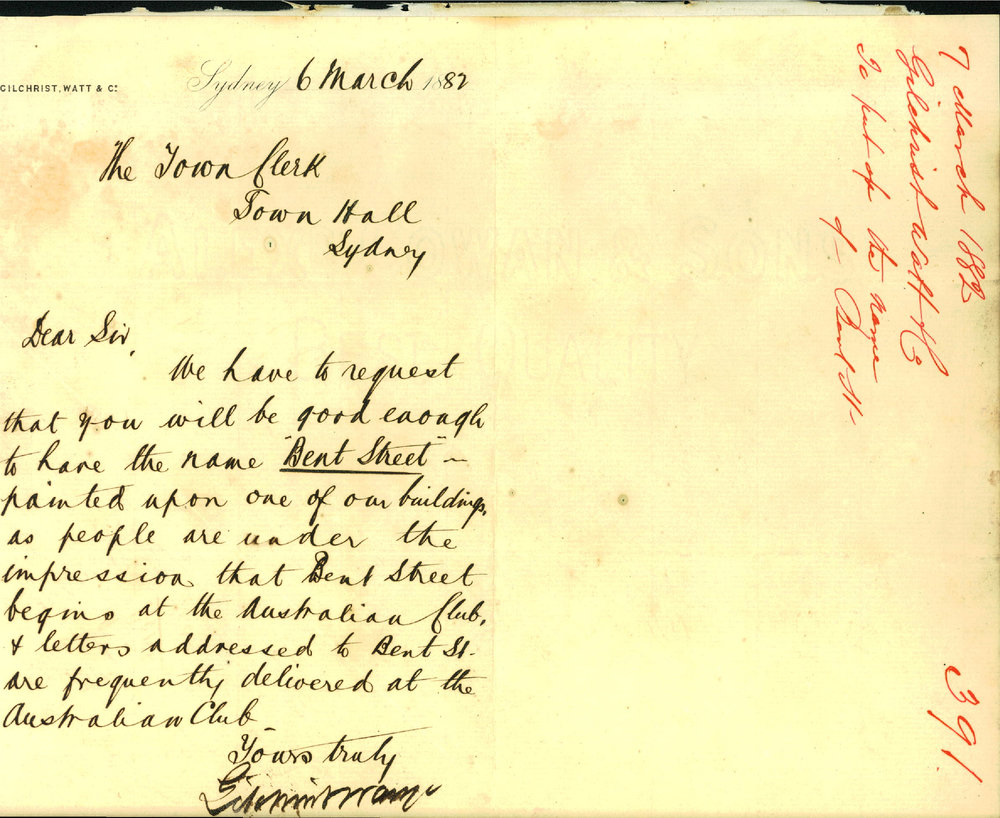 GILCHRIST, WATT & Co.
Sydney 6 March 1882
The Town Clerk
Town Hall
Sydney
Dear Sir,
We have to request
that you will be good enough
to have the name "Bent Street" ~
painted upon one of our buildings,
as people are under the
impression that Bent Street
begins at the Australian Club,
& letters addressed to Bent St.
are frequently delivered at the
Australian Club
Yours truly
7 March 1882
Gilchrist Watt & Co
To put up the name
of Bent St
391